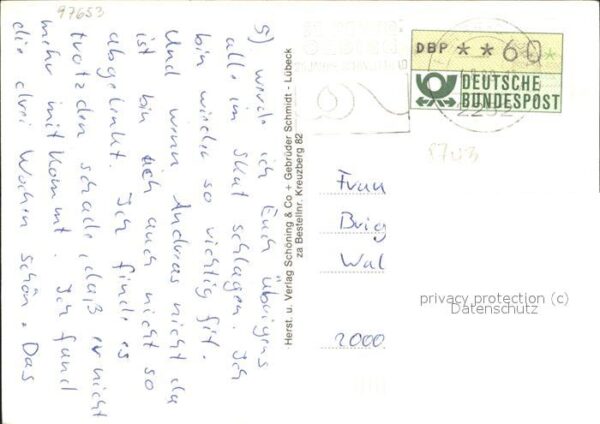 97653
5) werde ich Euch übrigens
alle im Skat schlagen. Ich
bin wieder so richtig fit.
Und wenn Andreas nicht da
ist bin ich auch nicht so
abgelenkt. Ich finde es
trotzdem schade, daß er nicht
mehr mitkommt. Ich fand
die drei Wochen schön. Das
Herst. u. Verlag Schöning & Co + Gebrüder Schmidt - Lübeck
za Bestellnr. Kreuzberg 82
DBP **60*
DEUTSCHE
BUNDESPOST
Frau
Brig
Wal
2000
privacy protection (c)
Datenschutz